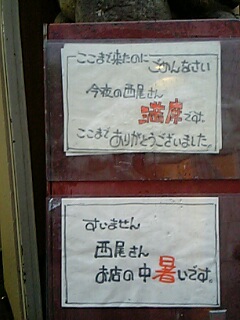 ここまで来たのに
ごめんなさい
今夜の西尾さん
満席です。
ここまで
ありがとうございました。
すいません
西尾さん
お店の中暑いです。